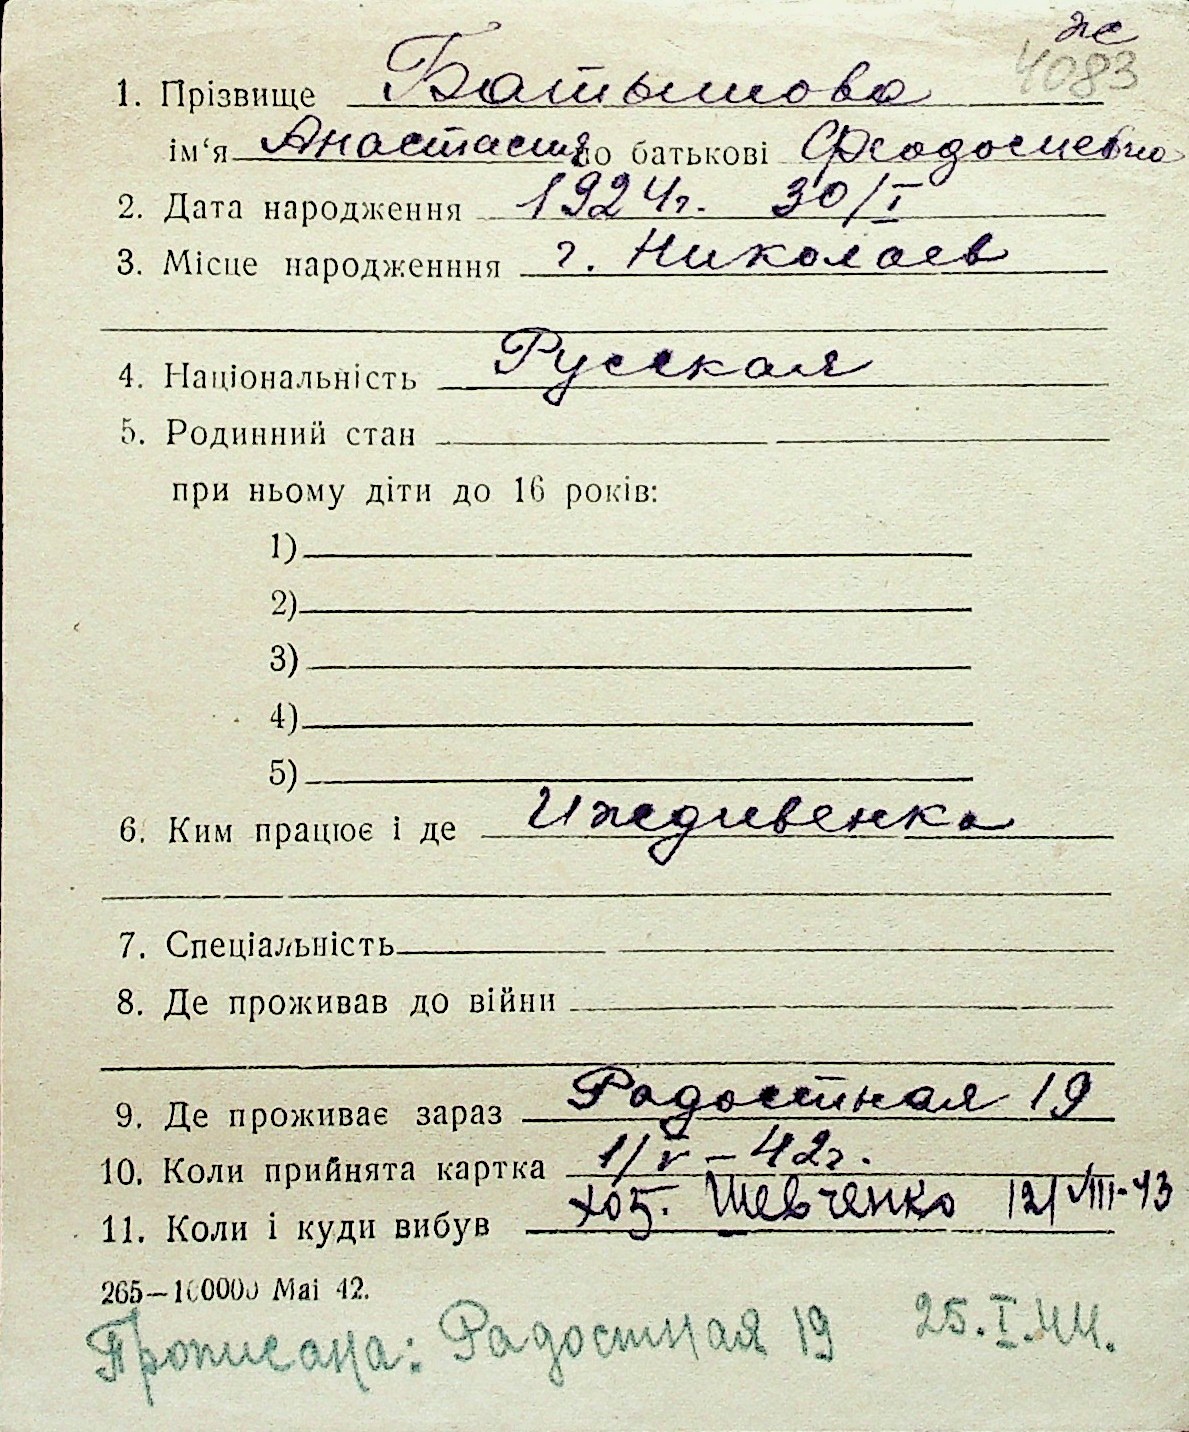 же
4083
1. Прізвище Батышова
ім‘я Анастасия по батькові Феодосиевна
2. Дата народження 1924г. 30/I
3. Місце народженння г. Николаев
4. Національність Русская
5. Родинний стан
при ньому діти до 16 років:
1)
2)
3)
4)
5)
6. Ким працює і де Иждивенка
7. Спеціальність
8. Де проживав до війни
9. Де проживає зараз Радостная 19
10. Коли прийнята картка 1/V – 42г.
11. Коли і куди вибув Шевченко 12/VIII-43
265—100000 Mai 42.
Прописана: Радостная 19 25.I.44.